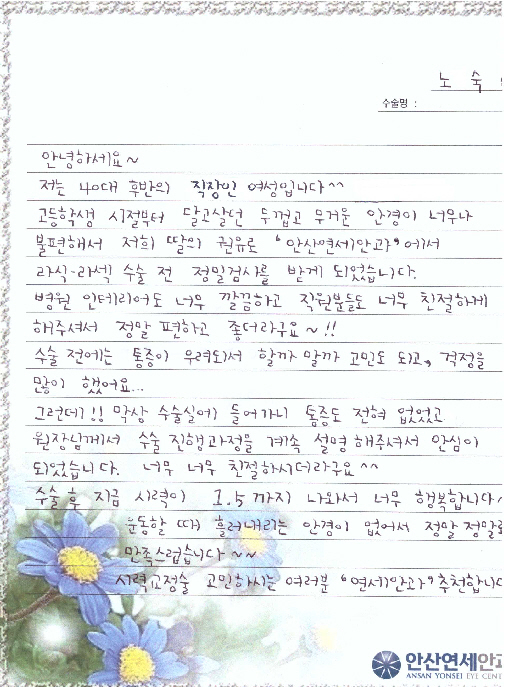 노 숙
수술명 :
안녕하세요~
저는 40대 후반의 직장인 여성입니다^^
고등학생 시절부터 달고살던 두껍고 무거운 안경이 너무나
불편해서 저희 딸의 권유로 "안산연세안과"에서
라식·라섹 수술 전 정밀검사를 받게 되었습니다.
병원 인테리어도 너무 깔끔하고 직원분들도 너무 친절하게
해주셔서 정말 편하고 좋더라구요~!!
수술 전에는 통증이 우려되서 할까 말까 고민도 되고, 걱정을
많이 했어요...
그런데!! 막상 수술실에 들어가니 통증도 전혀 없었고
원장님께서 수술 진행과정을 계속 설명해주셔서 안심이
되었습니다. 너무 너무 친절하시더라구요^^
수술 후 지금 시력이 1.5까지 나와서 너무 행복합니다
운동할 때 흘러내리는 안경이 없어서 정말 정말로
만족스럽습니다~~
시력교정술 고민하시는 여러분 "연세안과" 추천합니다
안산연세안과
ANSAN YONSEI EYE CENT